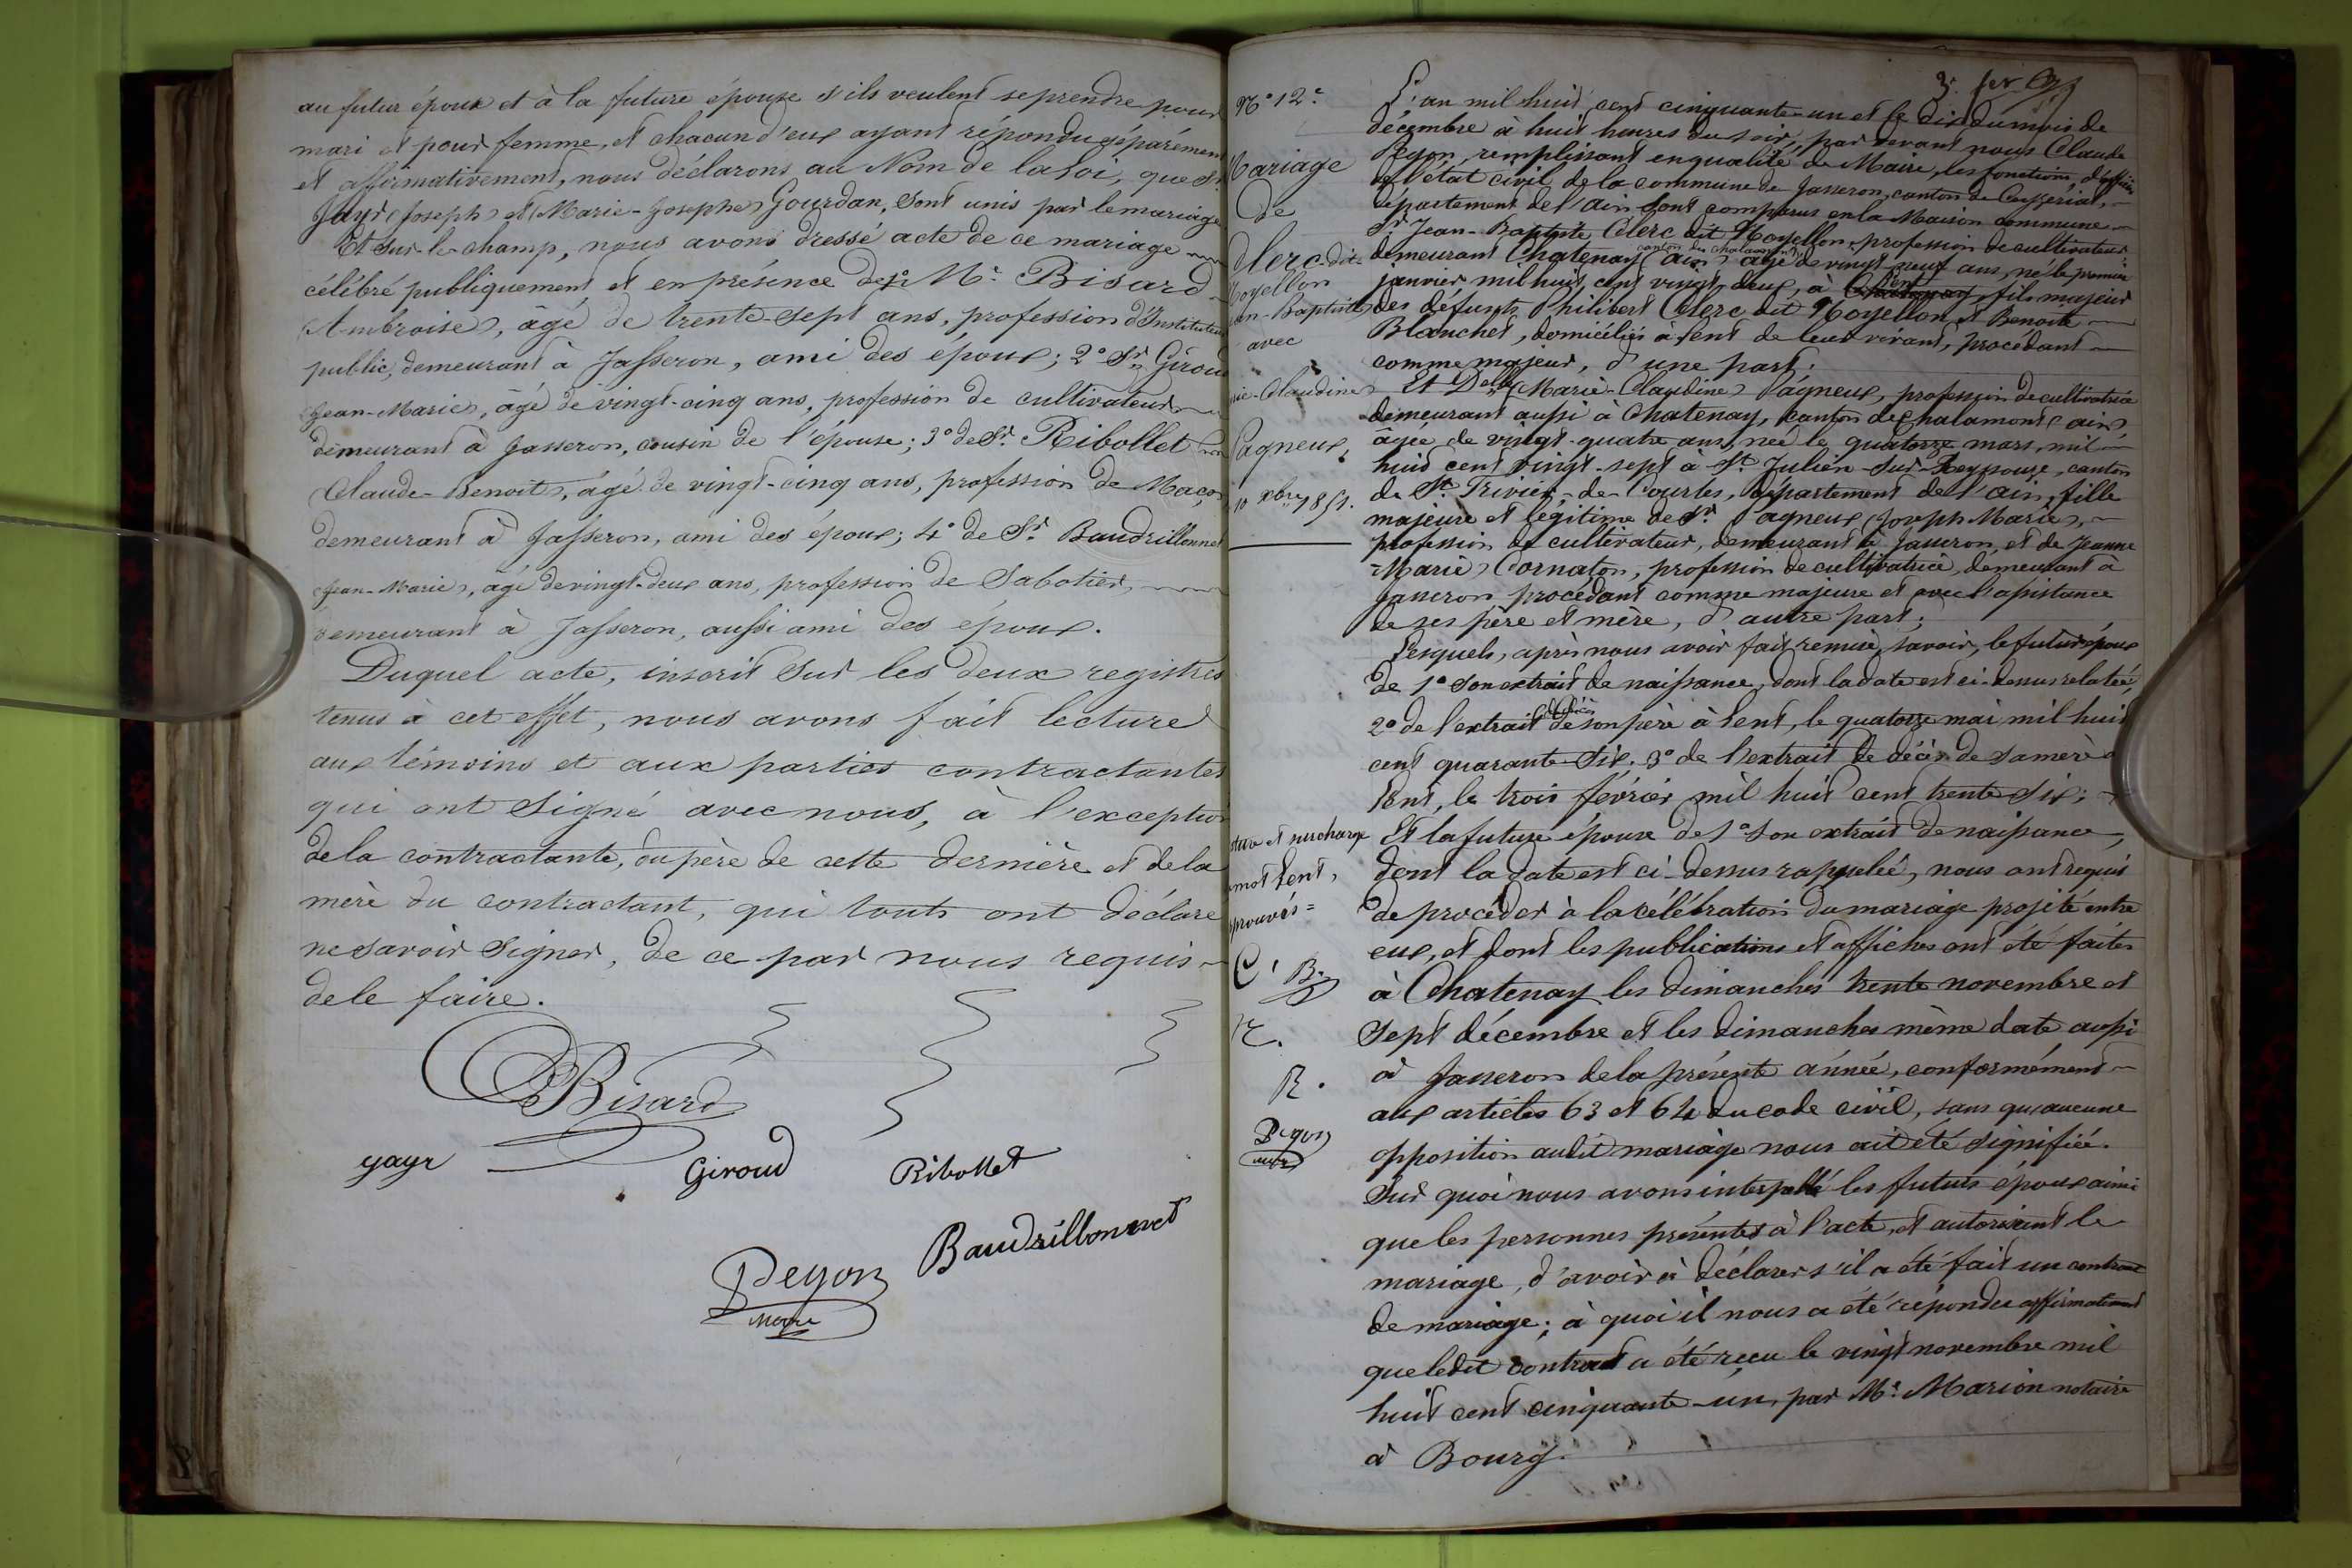 au futur époux et à la future épouse s'ils veulent se prendre pour
mari et pour femme, et chacun d'eux ayant répondu séparément
et affirmativement, nous déclarons au Nom de la Loi, que Sr.
Jayr (Joseph) et (Marie-Josephe) Gourdan, sont unis par le mariage
Et sur-le-champ, nous avons dressé acte de ce mariage
célébré publiquement et en présence de 1º Mr. Bisard
(Ambroise), âgé de trente-sept ans, profession d'Instituteur
public, demeurant à Jasseron, ami des époux; 2º Sr. Giroud
(Jean-Marie), âgé de vingt-cinq ans, profession de cultivateur
demeurant à Jasseron, cousin de l'épouse; 3º de Sr. Ribollet
(Claude-Benoit), âgé de vingt-cinq ans, profession de Maçon
demeurant à Jasseron, ami des époux; 4º de Sr. Baudrillonnet
(Jean-Marie), âgé de vingt-deux ans, profession de Sabotier,
demeurant à Jasseron, aussi ami des époux.
Duquel acte, inscrit sur les deux registres
tenus à cet effet, nous avons fait lecture
aux témoins et aux parties contractantes
qui ont signé avec nous, à l'exception
de la contractante, du père de cette dernière et de la
mère du contractant, qui touts ont déclaré
ne savoir signer, de ce par nous requis
de le faire.
Bisard
yayr
Giroud
Ribollet
Baudrillonnet
Peyon
Maire
Nº 12e.
Mariage
De
Clerc-dit
Noyellon
Jean-Baptiste
avec
Marie-Claudine
Pagneux,
10 xbre 1851.
L'an mil huit cent cinquante-un et le dix du mois de
décembre à huit heures du soir, par devant nous Claude
Peyon, remplissant en qualité de Maire, les fonctions d'officier
de l'état civil de la commune de Jasseron, canton de Ceyzériat,
département de l'Ain, sont comparus en la Maison commune
Sr. Jean-Baptiste Clerc dit Noyellon, profession de cultivateur
canton de Chalamont
demeurant Chatenay (ain) âgé de vingt-neuf ans, né le premier
janvier mil huit cent vingt-deux, à Lent, fils majeur
des défunts Philibert Clerc dit Noyellon et Benoite
Blanchet, domiciliés à Lent de leur vivant, procédant
comme majeur, d'une part;
Et Delle (Marie-Claudine) Pagneux, profession de cultivatrice
demeurant aussi à Chatenay, canton de Chalamont (ain)
âgée de vingt-quatre ans, née le quatorze mars, mil
huit cent vingt-sept à St. Julien-sur-Reyssouze, canton
de St. Trivier-de-Courtes, département de l'ain, fille
majeure et légitime de Sr. Pagneux (Joseph Marie),
profession de cultivateur, demeurant à Jasseron, et de Jeanne
-Marie) Cornaton, profession de cultivatrice, demeurant à
Jasseron, procédant comme majeure et avec l'assistance
de ses père et mère, d'autre part;
Lesquels, après nous avoir fait remise, savoir, le futur époux
de 1º son extrait de naissance, dont la date est ci-dessus relatée,
de décès
2º de l'extrait de son père à Lent, le quatorze mai mil huit
cent quarante-six. 3º de l'extrait de décès de sa mère à
Lent, le trois février mil huit cent trente-six;
Et la future épouse de 1º son extrait de naissance,
dont la date est ci-dessus rappelée, nous ont requis
de procéder à la célébration du mariage projeté entre
eux, et dont les publications et affiches ont été faites
à Chatenay les dimanches trente novembre et
sept décembre et les dimanches même date aussi
à Jasseron de la présente année, conformément
aux articles 63 et 64 du code civil, sans qu'aucune
opposition audit mariage nous ait été signifiée.
Sur quoi nous avons interpellé les futurs époux ainsi
que les personnes présentes à l'acte, et autorisant le
mariage, d'avoir à déclarer s'il a été fait un contrat
de mariage; à quoi il nous a été répondu affirmativement
que ledit contrat a été reçu le vingt novembre mil
huit cent cinquante-un, par Mr. Marion notaire
à Bourg.
surcharge
mot Lent,
C. B.
R.
R.
Peyon
maire